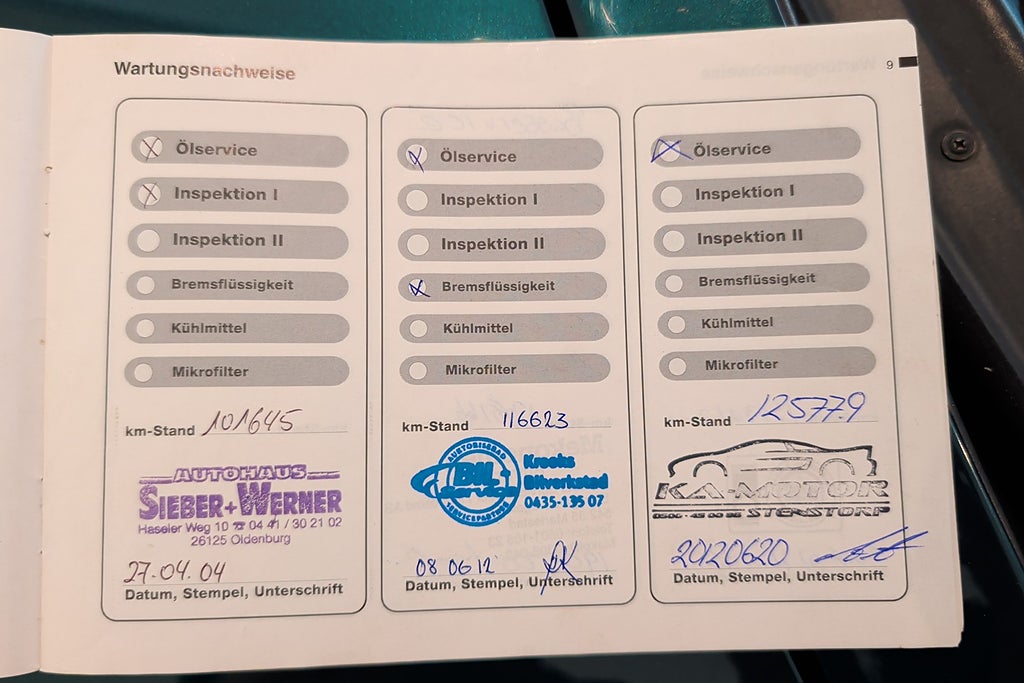 Wartungsnachweise
9
Ölservice
Inspektion I
Inspektion II
Bremsflüssigkeit
Kühlmittel
Mikrofilter
km-Stand 101645
AUTOHAUS
SIEBER+WERNER
Haseler Weg 10 ☎ 04 41 / 30 21 02
26125 Oldenburg
27.04.04
Datum, Stempel, Unterschrift
Ölservice
Inspektion I
Inspektion II
Bremsflüssigkeit
Kühlmittel
Mikrofilter
km-Stand 116623
AUKTORISERAD
BIL
service
SERVICEPARTNER
Kroks
Bilverkstad
0435-135 07
08 06 12
Datum, Stempel, Unterschrift
Ölservice
Inspektion I
Inspektion II
Bremsflüssigkeit
Kühlmittel
Mikrofilter
km-Stand 125779
KA-MOTOR
STENSTORP
20120620
Datum, Stempel, Unterschrift